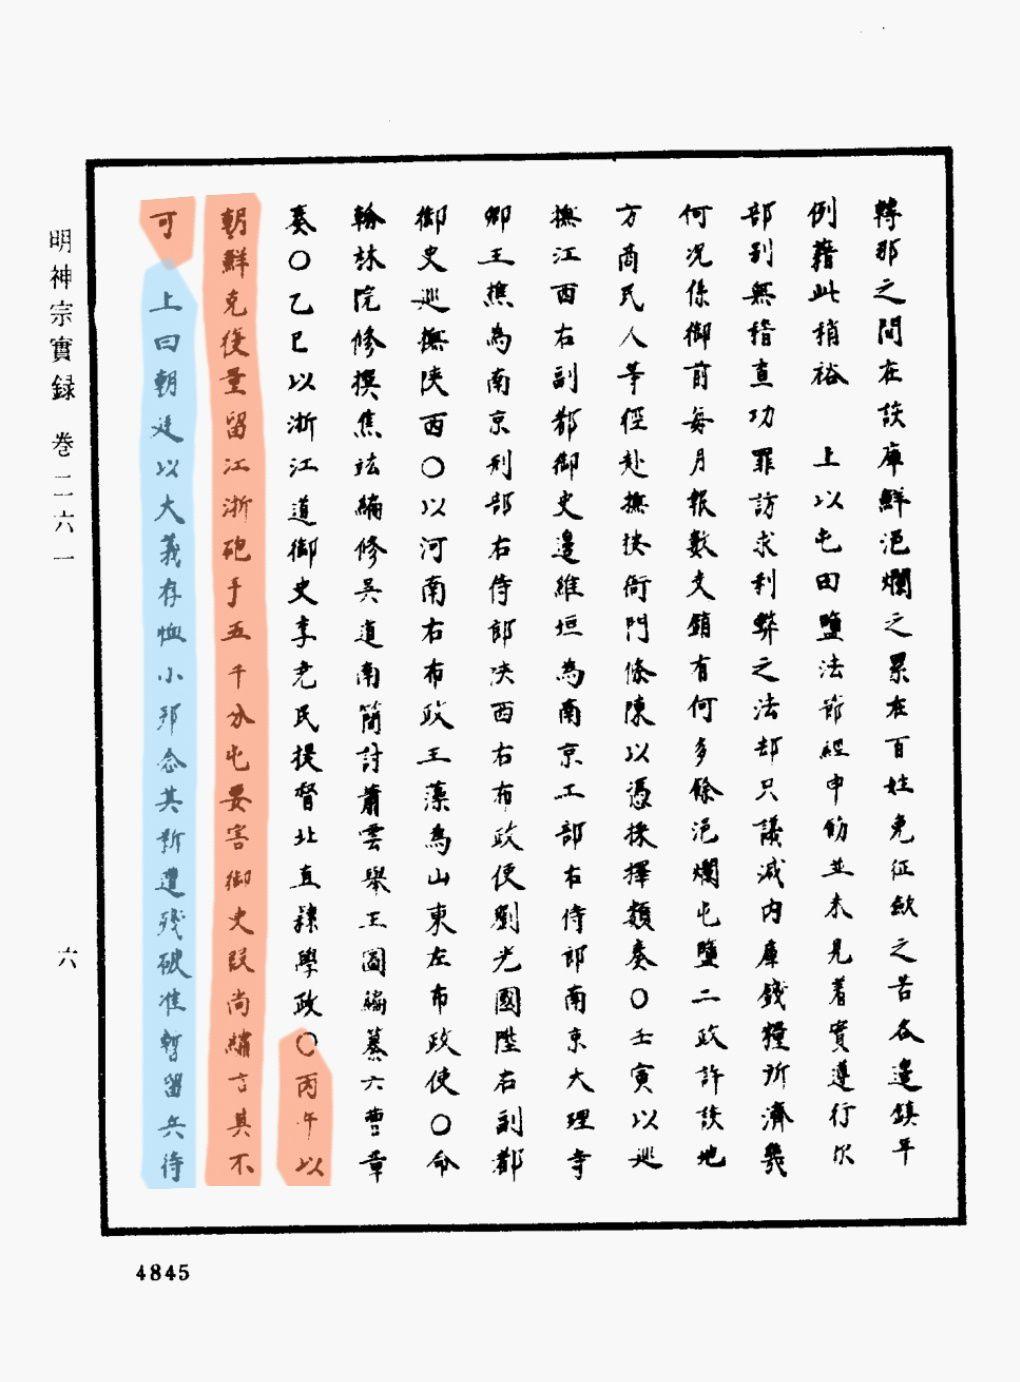 轉那之間在該庫鮮浥爛之累在百姓免征歛之苦各邊鎮年
例藉此稍裕　上以屯田鹽法節經申飭並未見着實遵行次
部別無稽查功罪訪求利弊之法却只議減內庫錢糧所濟幾
何况係御前每月報數支銷有何多餘浥爛屯鹽二政許該地
方商民人等徑赴撫按衙門條陳以憑採擇類奏〇壬寅以巡
撫江西右副都御史邊維垣為南京工部右侍郎南京大理寺
卿王樵為南京刑部右侍郎陝西右布政使劉光國陞右副都
御史巡撫陝西〇以河南右布政王藻為山東左布政使〇命
翰林院修撰焦竑編修吳道南簡討蕭雲舉王圖編纂六曹章
奏〇乙巳以浙江道御史李尧民提督北直隸學政〇丙午以
朝鮮克復量留江浙砲手五千分屯要害御史段尚繡言其不
可　上曰朝廷以大義存恤小邦念其新遭殘破准暫留兵待
明神宗實録　卷二六一
六
4845